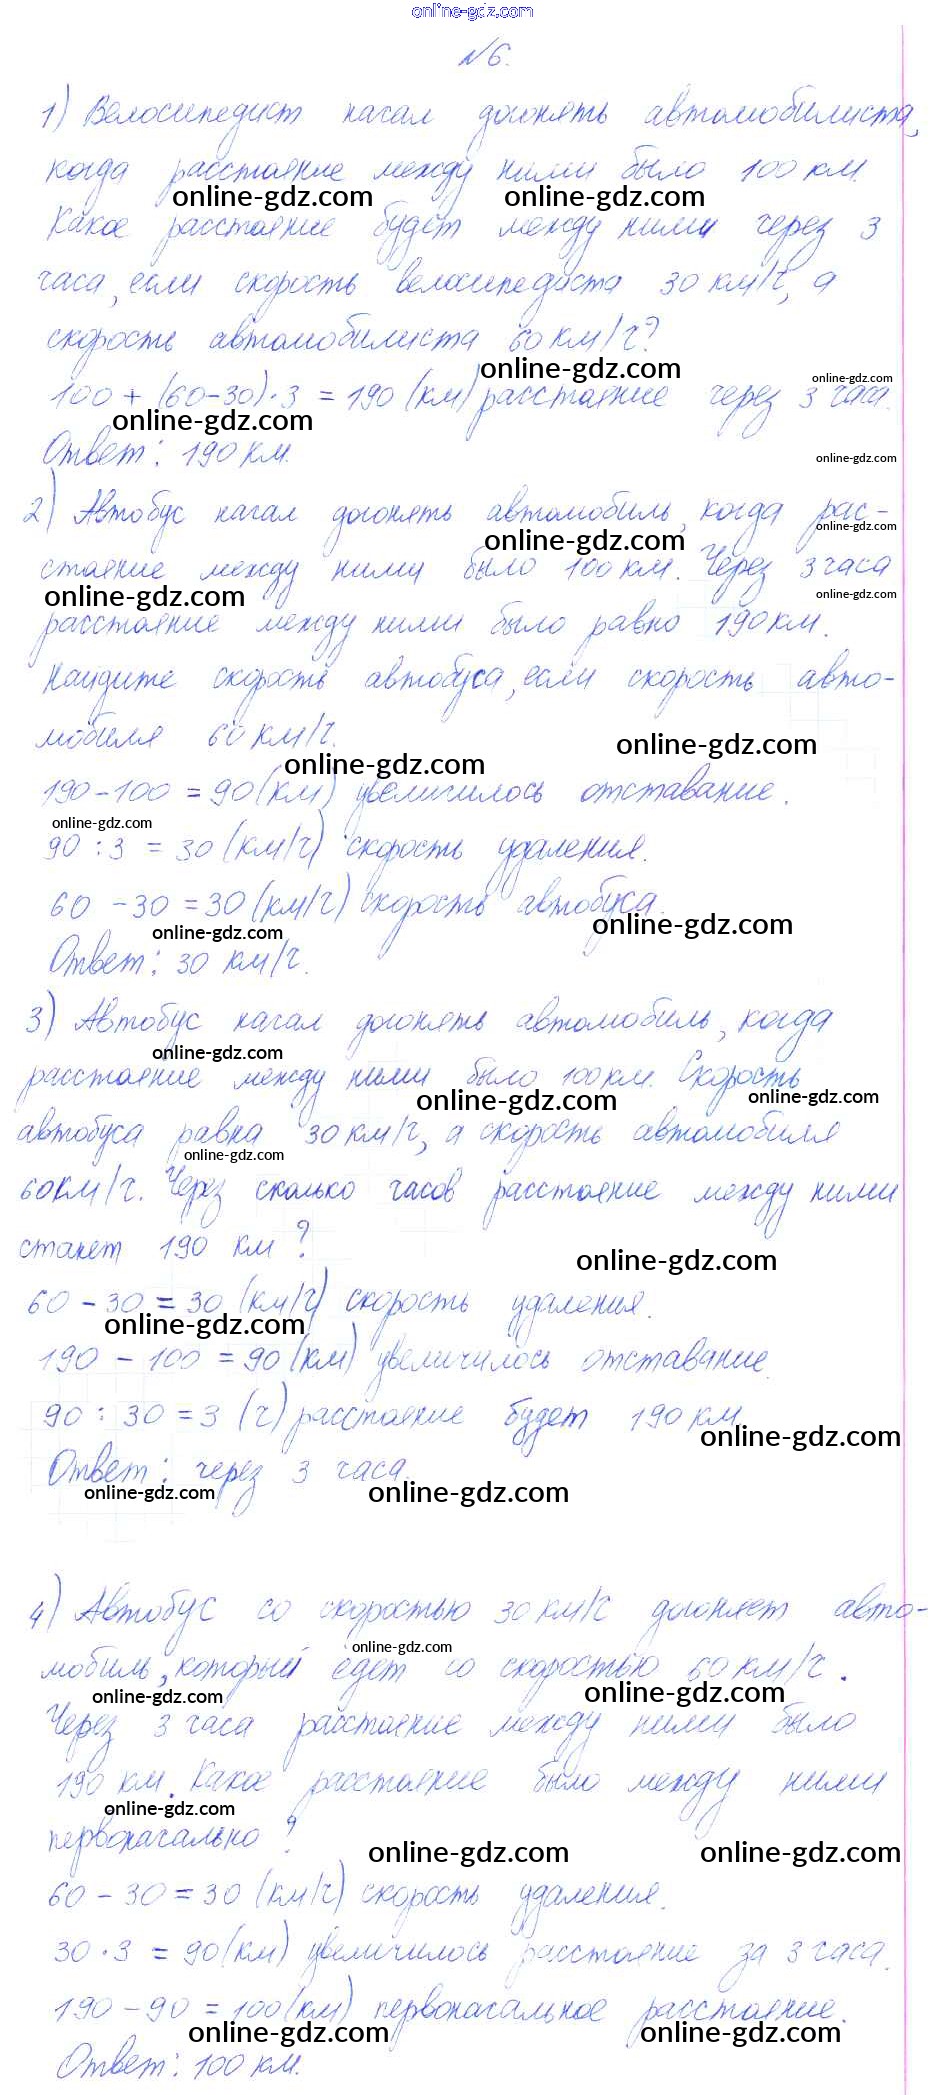 online-gdz.com
№6.
1) Велосипедист начал догонять автомобилиста,
когда расстояние между ними было 100 км.
online-gdz.com online-gdz.com
Какое расстояние будет между ними через 3
часа, если скорость велосипедиста 30 км/ч, а
скорость автомобилиста 60 км/ч?
online-gdz.com online-gdz.com
100 + (60-30)·3 = 190 (км) расстояние через 3 часа.
online-gdz.com
Ответ: 190 км.
online-gdz.com
2) Автобус начал догонять автомобиль, когда рас-
online-gdz.com online-gdz.com
стояние между ними было 100 км. Через 3 часа
online-gdz.com online-gdz.com
расстояние между ними было равно 190 км.
Найдите скорость автобуса, если скорость авто-
мобиля 60 км/ч.
online-gdz.com online-gdz.com
190-100 = 90 (км) увеличилось отставание.
online-gdz.com
90 : 3 = 30 (км/ч) скорость удаления.
60 - 30 = 30 (км/ч) скорость автобуса.
online-gdz.com online-gdz.com
Ответ: 30 км/ч.
3) Автобус начал догонять автомобиль, когда
online-gdz.com
расстояние между ними было 100 км. Скорость
online-gdz.com online-gdz.com
автобуса равна 30 км/ч, а скорость автомобиля
online-gdz.com
60 км/ч. Через сколько часов расстояние между ними
станет 190 км?
online-gdz.com
60 - 30 = 30 (км/ч) скорость удаления.
online-gdz.com
190 - 100 = 90 (км) увеличилось отставание.
90 : 30 = 3 (ч) расстояние будет 190 км
online-gdz.com
Ответ: через 3 часа.
online-gdz.com online-gdz.com
4) Автобус со скоростью 30 км/ч догоняет авто-
online-gdz.com
мобиль, который едет со скоростью 60 км/ч.
online-gdz.com online-gdz.com
Через 3 часа расстояние между ними было
190 км. Какое расстояние было между ними
online-gdz.com
первоначально?
online-gdz.com online-gdz.com
60 - 30 = 30 (км/ч) скорость удаления.
30 · 3 = 90 (км) увеличилось расстояние за 3 часа.
190 - 90 = 100 (км) первоначальное расстояние.
online-gdz.com online-gdz.com
Ответ: 100 км.